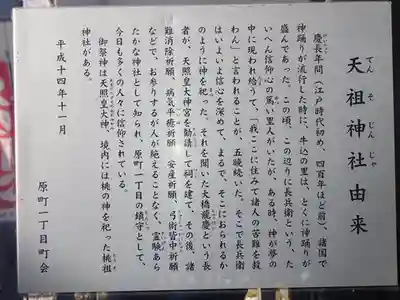 天祖神社由来
てんそじんじゃ
慶長年間(江戸時代初め、四百年ほど前)、諸国で
神踊りが流行した時に、牛込の里は、とくに神踊りが
盛んであった。この頃、この辺りに長兵衛という、た
いへん信仰心の篤い里人がいたが、ある時、神が夢の
中に現われ給うて、「我ここに住みて諸人の苦難を救
わん」と言われることが、五晩続いた。そこで長兵衛
はいよいよ信心を深めて、まるで、そこにおられるか
のように神を祀った。それを聞いた大橋龍慶という長
者が、天照皇大神宮を勧請して祠を建て、その後、諸
難消除祈願、病気平癒祈願、安産祈願、弓術皆中祈願
などで、お参りする人が絶えることなく、霊験あら
たかな神社として知られ、原町一丁目の鎮守として、
今日も多くの人々に信仰されている。
御祭神は天照皇大神、境内には桃の神を祀った桃祖
神社がある。
平成十四年十一月
原町一丁目町会